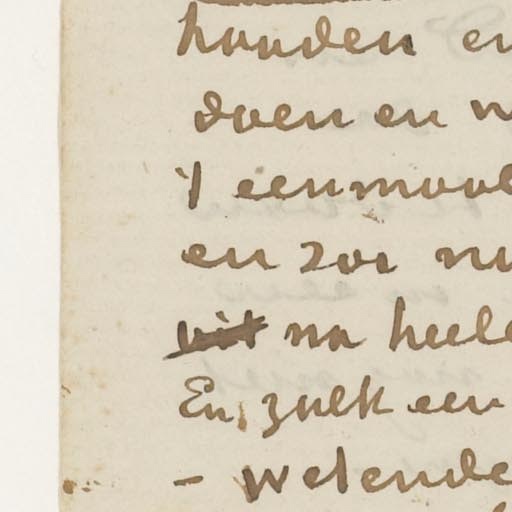 houden en
doen en
't eenmaal
en zoo nu
uit na heel
En zulk een
– wetende